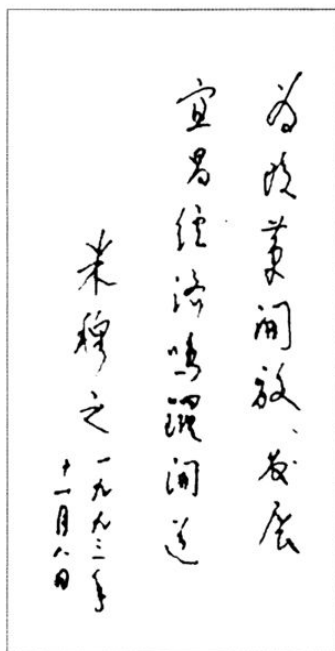 为改革開放、发展
宜昌經济鸣鑼開道
朱穆之
一九九三年
十一月八日